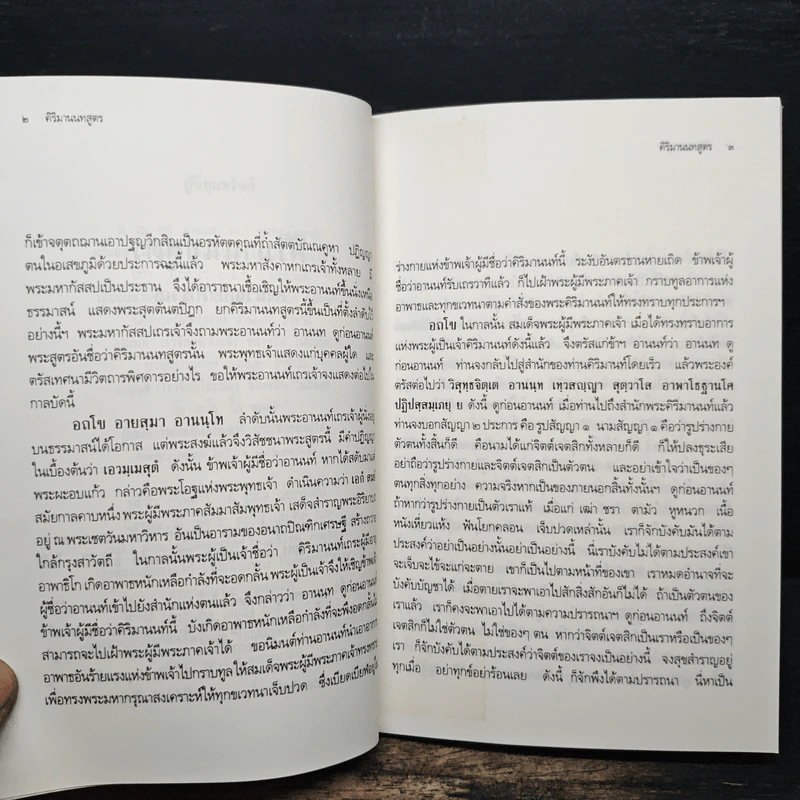 ๒ คิริมานนทสูตร
ก็เข้าจตุตถฌานเอาปฐญวีกสิณเป็นอรหัตตคุณที่ถ้ำสัตตบัณณคูหา ปฏิญญา
ตนในอเสขภูมิด้วยประการฉะนี้แล้ว พระมหาสังคาหกเถรเจ้าทั้งหลาย มี
พระมหากัสสปเป็นประธาน จึงได้อาราธนาเชื้อเชิญให้พระอานนท์ขึ้นนั่งเหนือ
ธรรมาสน์ แสดงพระสุตตันตปิฎก ยกคิริมานนทสูตรนี้ขึ้นเป็นที่ตั้งลำดับไว้
อย่างนี้ฯ พระมหากัสสปเถรเจ้าจึงถามพระอานนท์ว่า อานนท ดูก่อนอานนท์
พระสูตรอันชื่อว่าคิริมานนทสูตรนั้น พระพุทธเจ้าแสดงแก่บุคคลผู้ใด และ
ตรัสเทศนามีวิตถารพิศดารอย่างไร ขอให้พระอานนท์เถรเจ้าจงแสดงต่อไปใน
กาลบัดนี้
อถโข อายสฺมา อานนฺโท ลำดับนั้นพระอานนท์เถรเจ้าผู้นั่งอยู่
บนธรรมาสน์ได้โอกาส แต่พระสงฆ์แล้วจึงวิสัชชนาพระสูตรนี้ มีคำปฏิญญา
ในเบื้องต้นว่า เอวมฺเมสุตํ ดังนั้น ข้าพเจ้าผู้มีชื่อว่าอานนท์ หากได้สดับมาแต่
พระผะอบแก้ว กล่าวคือพระโอฐแห่งพระพุทธเจ้า ดำเนินความว่า เอกํ สมยํ
สมัยกาลคาบหนึ่ง พระผู้มีพระภาคสัมมาสัมพุทธเจ้า เสด็จสำราญพระอิริยาบถ
อยู่ ณ พระเชตวันมหาวิหาร อันเป็นอารามของอนาถปิณฑิกเศรษฐี สร้างถวาย
ใกล้กรุงสาวัตถี ในกาลนั้นพระผู้เป็นเจ้าชื่อว่า คิริมานนท์เถรผู้มีอายุ
อาพาธิโก เกิดอาพาธหนักเหลือกำลังที่จะอดกลั้น พระผู้เป็นเจ้าจึงให้เชิญข้าพเจ้า
ผู้ชื่อว่าอานนท์เข้าไปยังสำนักแห่งตนแล้ว จึงกล่าวว่า อานนท ดูก่อนอานนท์
ข้าพเจ้าผู้มีชื่อว่าคิริมานนท์นี้ บังเกิดอาพาธหนักเหลือกำลังที่จะพึงอดกลั้น
สามารถจะไปเฝ้าพระผู้มีพระภาคเจ้าได้ ขอนิมนต์ท่านอานนท์นำเอาอาการ
อาพาธอันร้ายแรงแห่งข้าพเจ้าไปกราบทูลให้สมเด็จพระผู้มีพระภาคเจ้าทรงทราบ
เพื่อทรงพระมหากรุณาสงเคราะห์ให้ทุกขเวทนาเจ็บปวด ซึ่งเบียดเบียฬอยู่
คิริมานนทสูตร ๓
ร่างกายแห่งข้าพเจ้าผู้มีชื่อว่าคิริมานนท์นี้ ระงับอันตรธานหายเถิด ข้าพเจ้าผู้
ชื่อว่าอานนท์รับเถรวาทีแล้ว ก็ไปเฝ้าพระผู้มีพระภาคเจ้า กราบทูลอาการแห่ง
อาพาธและทุกขเวทนาตามคำสั่งของพระคิริมานนท์ให้ทรงทราบทุกประการฯ
อถโข ในกาลนั้น สมเด็จพระผู้มีพระภาคเจ้า เมื่อได้ทรงทราบอาการ
แห่งพระผู้เป็นเจ้าคิริมานนท์ดังนี้แล้ว จึงตรัสแก่ข้าฯ อานนท์ว่า อานนท ดู
ก่อนอานนท์ ท่านจงกลับไปสู่สำนักของท่านคิริมานนท์โดยเร็ว แล้วพระองค์
ตรัสต่อไปว่า วิสุทฺธจิตฺเต อานนฺท เทฺวสญฺญา สุตฺวาโส อาพาโธฐานโศ
ปฏิปสฺสมฺเภยฺย ดังนี้ ดูก่อนอานนท์ เมื่อท่านไปถึงสำนักพระคิริมานนท์แล้ว
ท่านจงบอกสัญญา ๒ ประการ คือ รูปสัญญา ๑ นามสัญญา ๑ คือว่ารูปร่างกาย
ตัวตนทั้งสิ้นก็ดี คือนามได้แก่จิตต์เจตสิกทั้งหลายก็ดี ก็ให้ปลงธุระเสีย
อย่าถือว่ารูปร่างกายและจิตต์เจตสิกเป็นตัวตน และอย่าเข้าใจว่าเป็นของๆ
ตนทุกสิ่งทุกอย่าง ความจริงหากเป็นของภายนอกสิ้นทั้งนั้นฯ ดูก่อนอานนท์
ถ้าหากว่ารูปร่างกายเป็นตัวเราแท้ เมื่อแก่ เฒ่า ชรา ตามัว หูหนวก เนื้อ
หนังเหี่ยวแห้ง ฟันโยกคลอน เจ็บปวดเหล่านั้น เราก็จักบังคับมันได้ตาม
ประสงค์ว่าอย่าเป็นอย่างนั้นอย่าเป็นอย่างนี้ นี่เราบังคับไม่ได้ตามประสงค์เขา
จะเจ็บจะไข้จะแก่จะตาย เขาก็เป็นไปตามหน้าที่ของเขา เราหมดอำนาจที่จะ
บังคับบัญชาได้ เมื่อตายเราจะพาเอาไปสักสิ่งสักอันก็ไม่ได้ ถ้าเป็นตัวตนของ
เราแล้ว เราก็คงจะพาเอาไปได้ตามความปรารถนาฯ ดูก่อนอานนท์ ถึงจิตต์
เจตสิกก็ไม่ใช่ตัวตน ไม่ใช่ของๆ ตน หากว่าจิตต์เจตสิกเป็นเราหรือเป็นของๆ
เรา ก็จักบังคับได้ตามประสงค์ว่าจิตต์ของเราจงเป็นอย่างนี้ จงสุขสำราญอยู่
ทุกเมื่อ อย่าทุกข์อย่าร้อนเลย ดังนี้ ก็จักพึงได้ตามปรารถนา นี่หาเป็น